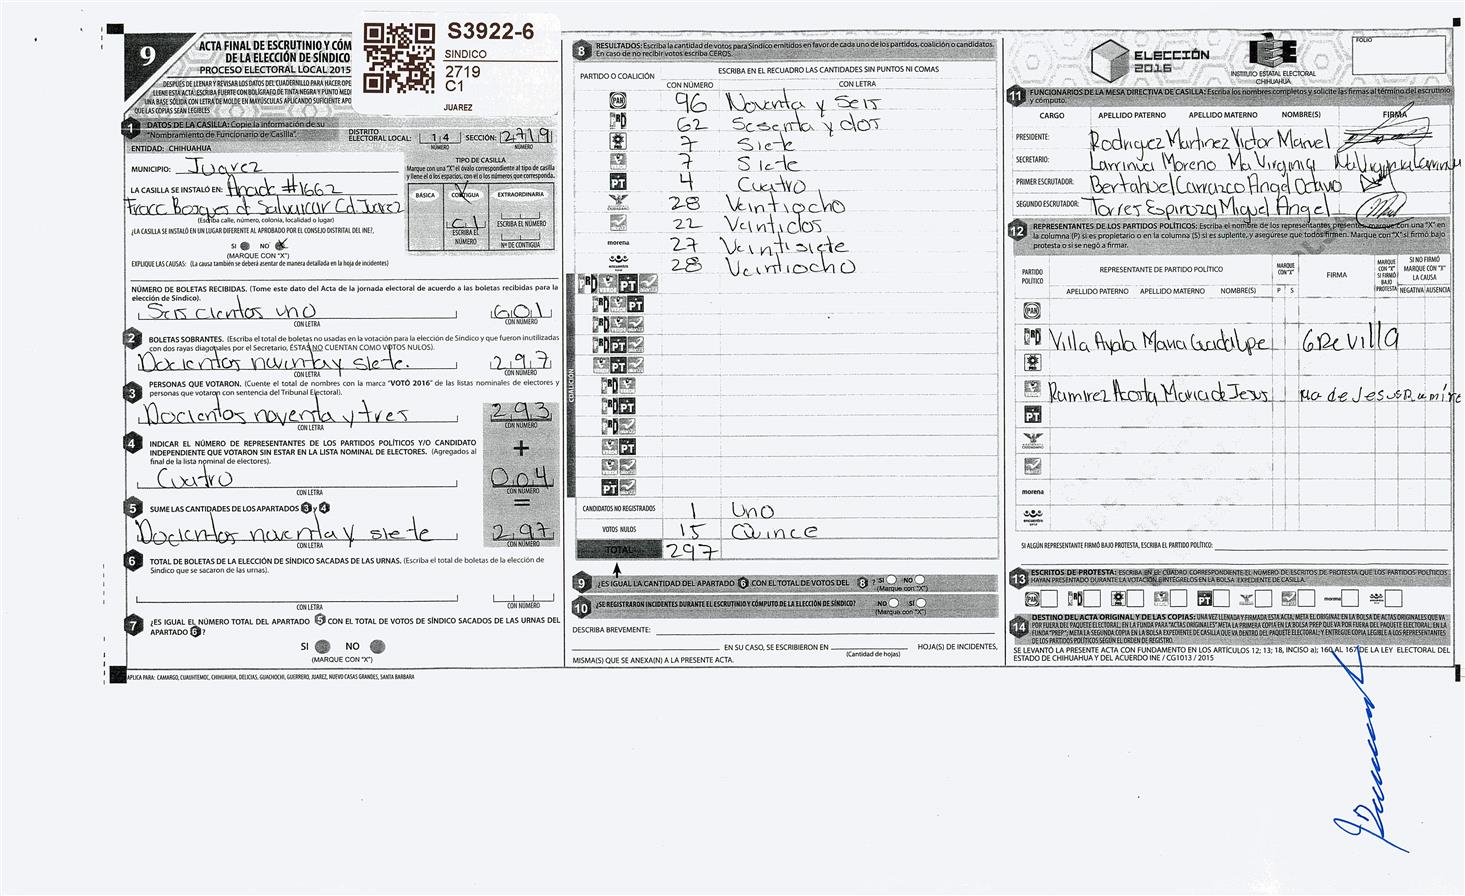 9
ACTA FINAL DE ESCRUTINIO Y CÓM
DE LA ELECCIÓN DE SÍNDICO
PROCESO ELECTORAL LOCAL 2015
DESPUÉS DE LLENAR Y REVISAR LOS DATOS DEL CUADERNILLO PARA HACER OPE
LLENE ESTA ACTA; ESCRIBA FUERTE CON BOLÍGRAFO DE TINTA NEGRA Y PUNTO MED
UNA BASE SÓLIDA CON LETRA DE MOLDE EN MAYÚSCULAS APLICANDO SUFICIENTE APO
QUE LAS COPIAS SEAN LEGIBLES
S3922-6
SINDICO
2719
C1
JUAREZ
1 DATOS DE LA CASILLA: Copie la información de su
"Nombramiento de Funcionario de Casilla".
DISTRITO ELECTORAL LOCAL: 14 SECCIÓN: 2719
NÚMERO NÚMERO
ENTIDAD: CHIHUAHUA
MUNICIPIO: Juarez
LA CASILLA SE INSTALÓ EN: #1662
Fracc Bosques d Salvarcar Cd. Juarez
(Escriba calle, número, colonia, localidad o lugar)
¿LA CASILLA SE INSTALÓ EN UN LUGAR DIFERENTE AL APROBADO POR EL CONSEJO DISTRITAL DEL INE?,
SI NO X
(MARQUE CON "X")
EXPLIQUE LAS CAUSAS: (La causa también se deberá asentar de manera detallada en la hoja de incidentes)
TIPO DE CASILLA
Marque con una "X" el óvalo correspondiente al tipo de casilla
y llene el o los espacios, con el o los números que corresponda.
BÁSICA CONTIGUA EXTRAORDINARIA
C1
ESCRIBA EL NÚMERO
ESCRIBA EL NÚMERO
Nº DE CONTIGUA
NÚMERO DE BOLETAS RECIBIDAS. (Tome este dato del Acta de la jornada electoral de acuerdo a las boletas recibidas para la
elección de Síndico).
Seis cientos uno 601
CON LETRA CON NÚMERO
2 BOLETAS SOBRANTES. (Escriba el total de boletas no usadas en la votación para la elección de Síndico y que fueron inutilizadas
con dos rayas diagonales por el Secretario, ÉSTAS NO CUENTAN COMO VOTOS NULOS).
Docientos noventa y siete. 297
CON LETRA CON NÚMERO
3 PERSONAS QUE VOTARON. (Cuente el total de nombres con la marca "VOTÓ 2016" de las listas nominales de electores y
personas que votaron con sentencia del Tribunal Electoral).
Docientos noventa y tres 293
CON LETRA CON NÚMERO
4 INDICAR EL NÚMERO DE REPRESENTANTES DE LOS PARTIDOS POLÍTICOS Y/O CANDIDATO
INDEPENDIENTE QUE VOTARON SIN ESTAR EN LA LISTA NOMINAL DE ELECTORES. (Agregados al
final de la lista nominal de electores).
+
Cuatro 004
CON LETRA CON NÚMERO
5 SUME LAS CANTIDADES DE LOS APARTADOS 3 y 4
=
Docientos noventa y siete 297
CON LETRA CON NÚMERO
6 TOTAL DE BOLETAS DE LA ELECCIÓN DE SÍNDICO SACADAS DE LAS URNAS. (Escriba el total de boletas de la elección de
Síndico que se sacaron de las urnas).
CON LETRA CON NÚMERO
7 ¿ES IGUAL EL NÚMERO TOTAL DEL APARTADO 5 CON EL TOTAL DE VOTOS DE SÍNDICO SACADOS DE LAS URNAS DEL
APARTADO 6?
SI NO
(MARQUE CON "X")
APLICA PARA: CAMARGO, CUAUHTEMOC, CHIHUAHUA, DELICIAS, GUACHOCHI, GUERRERO, JUAREZ, NUEVO CASAS GRANDES, SANTA BARBARA
8 RESULTADOS: Escriba la cantidad de votos para Síndico emitidos en favor de cada uno de los partidos, coalición o candidatos.
En caso de no recibir votos escriba CEROS.
PARTIDO O COALICIÓN
ESCRIBA EN EL RECUADRO LAS CANTIDADES SIN PUNTOS NI COMAS
CON NÚMERO CON LETRA
PAN 96 Noventa y Seis
62 Sesenta y dos
PRD 7 Siete
7 Siete
PT 4 Cuatro
28 Veintiocho
22 Veintidos
morena 27 Veintisiete
encuentro social 28 Veintiocho
COALICIÓN
CANDIDATOS NO REGISTRADOS 1 Uno
VOTOS NULOS 15 Quince
TOTAL 297
9 ¿ES IGUAL LA CANTIDAD DEL APARTADO 6 CON EL TOTAL DE VOTOS DEL 8? SI NO
(Marque con "X")
10 ¿SE REGISTRARON INCIDENTES DURANTE EL ESCRUTINIO Y CÓMPUTO DE LA ELECCIÓN DE SÍNDICO? NO SI
(Marque con "X")
DESCRIBA BREVEMENTE:
EN SU CASO, SE ESCRIBIERON EN HOJA(S) DE INCIDENTES,
(Cantidad de hojas)
MISMA(S) QUE SE ANEXA(N) A LA PRESENTE ACTA.
ELECCIÓN
2016
IEE
INSTITUTO ESTATAL ELECTORAL
CHIHUAHUA
FOLIO
11 FUNCIONARIOS DE LA MESA DIRECTIVA DE CASILLA: Escriba los nombres completos y solicite las firmas al término del escrutinio
y cómputo.
CARGO APELLIDO PATERNO APELLIDO MATERNO NOMBRE(S) FIRMA
PRESIDENTE: Rodriguez Martinez Victor Manuel
SECRETARIO: Moreno Ma Virginia
PRIMER ESCRUTADOR: Carranco Angel Octavio
SEGUNDO ESCRUTADOR: Torres Espinoza Miguel Angel
12 REPRESENTANTES DE LOS PARTIDOS POLÍTICOS: Escriba el nombre de los representantes presentes, marque con una "X" en
la columna (P) si es propietario o en la columna (S) si es suplente, y asegúrese que todos firmen. Marque con "X" si firmó bajo
protesta o si se negó a firmar.
PARTIDO POLÍTICO
REPRESENTANTE DE PARTIDO POLÍTICO
APELLIDO PATERNO APELLIDO MATERNO NOMBRE(S)
MARQUE CON "X"
P S
FIRMA
MARQUE CON "X" SI FIRMÓ BAJO PROTESTA
SI NO FIRMÓ MARQUE CON "X" LA CAUSA
NEGATIVA AUSENCIA
PAN
Villa Ayala Maria Guadalupe GPE Villa
PRD
Ramirez Acosta Maria de Jesus Ma de Jesus Ramire
PT
morena
encuentro social
SI ALGÚN REPRESENTANTE FIRMÓ BAJO PROTESTA, ESCRIBA EL PARTIDO POLÍTICO:
13 ESCRITOS DE PROTESTA: ESCRIBA EN EL CUADRO CORRESPONDIENTE EL NÚMERO DE ESCRITOS DE PROTESTA QUE LOS PARTIDOS POLÍTICOS
HAYAN PRESENTADO DURANTE LA VOTACIÓN E INTÉGRELOS EN LA BOLSA EXPEDIENTE DE CASILLA.
14 DESTINO DEL ACTA ORIGINAL Y DE LAS COPIAS: UNA VEZ LLENADA Y FIRMADA ESTA ACTA, META EL ORIGINAL EN LA BOLSA DE ACTAS ORIGINALES QUE VA
POR FUERA DEL PAQUETE ELECTORAL, EN LA FUNDA PARA "ACTAS ORIGINALES" META LA PRIMERA COPIA EN LA BOLSA PREP QUE VA POR FUERA DEL PAQUETE ELECTORAL, EN LA
FUNDA "PREP"; META LA SEGUNDA COPIA EN LA BOLSA EXPEDIENTE DE CASILLA QUE VA DENTRO DEL PAQUETE ELECTORAL; Y ENTREGUE COPIA LEGIBLE A LOS REPRESENTANTES
DE LOS PARTIDOS POLÍTICOS SEGÚN EL ORDEN DE REGISTRO.
SE LEVANTÓ LA PRESENTE ACTA CON FUNDAMENTO EN LOS ARTÍCULOS 12; 13; 18, INCISO a); 160 AL 167 DE LA LEY ELECTORAL DEL
ESTADO DE CHIHUAHUA Y DEL ACUERDO INE / CG1013 / 2015